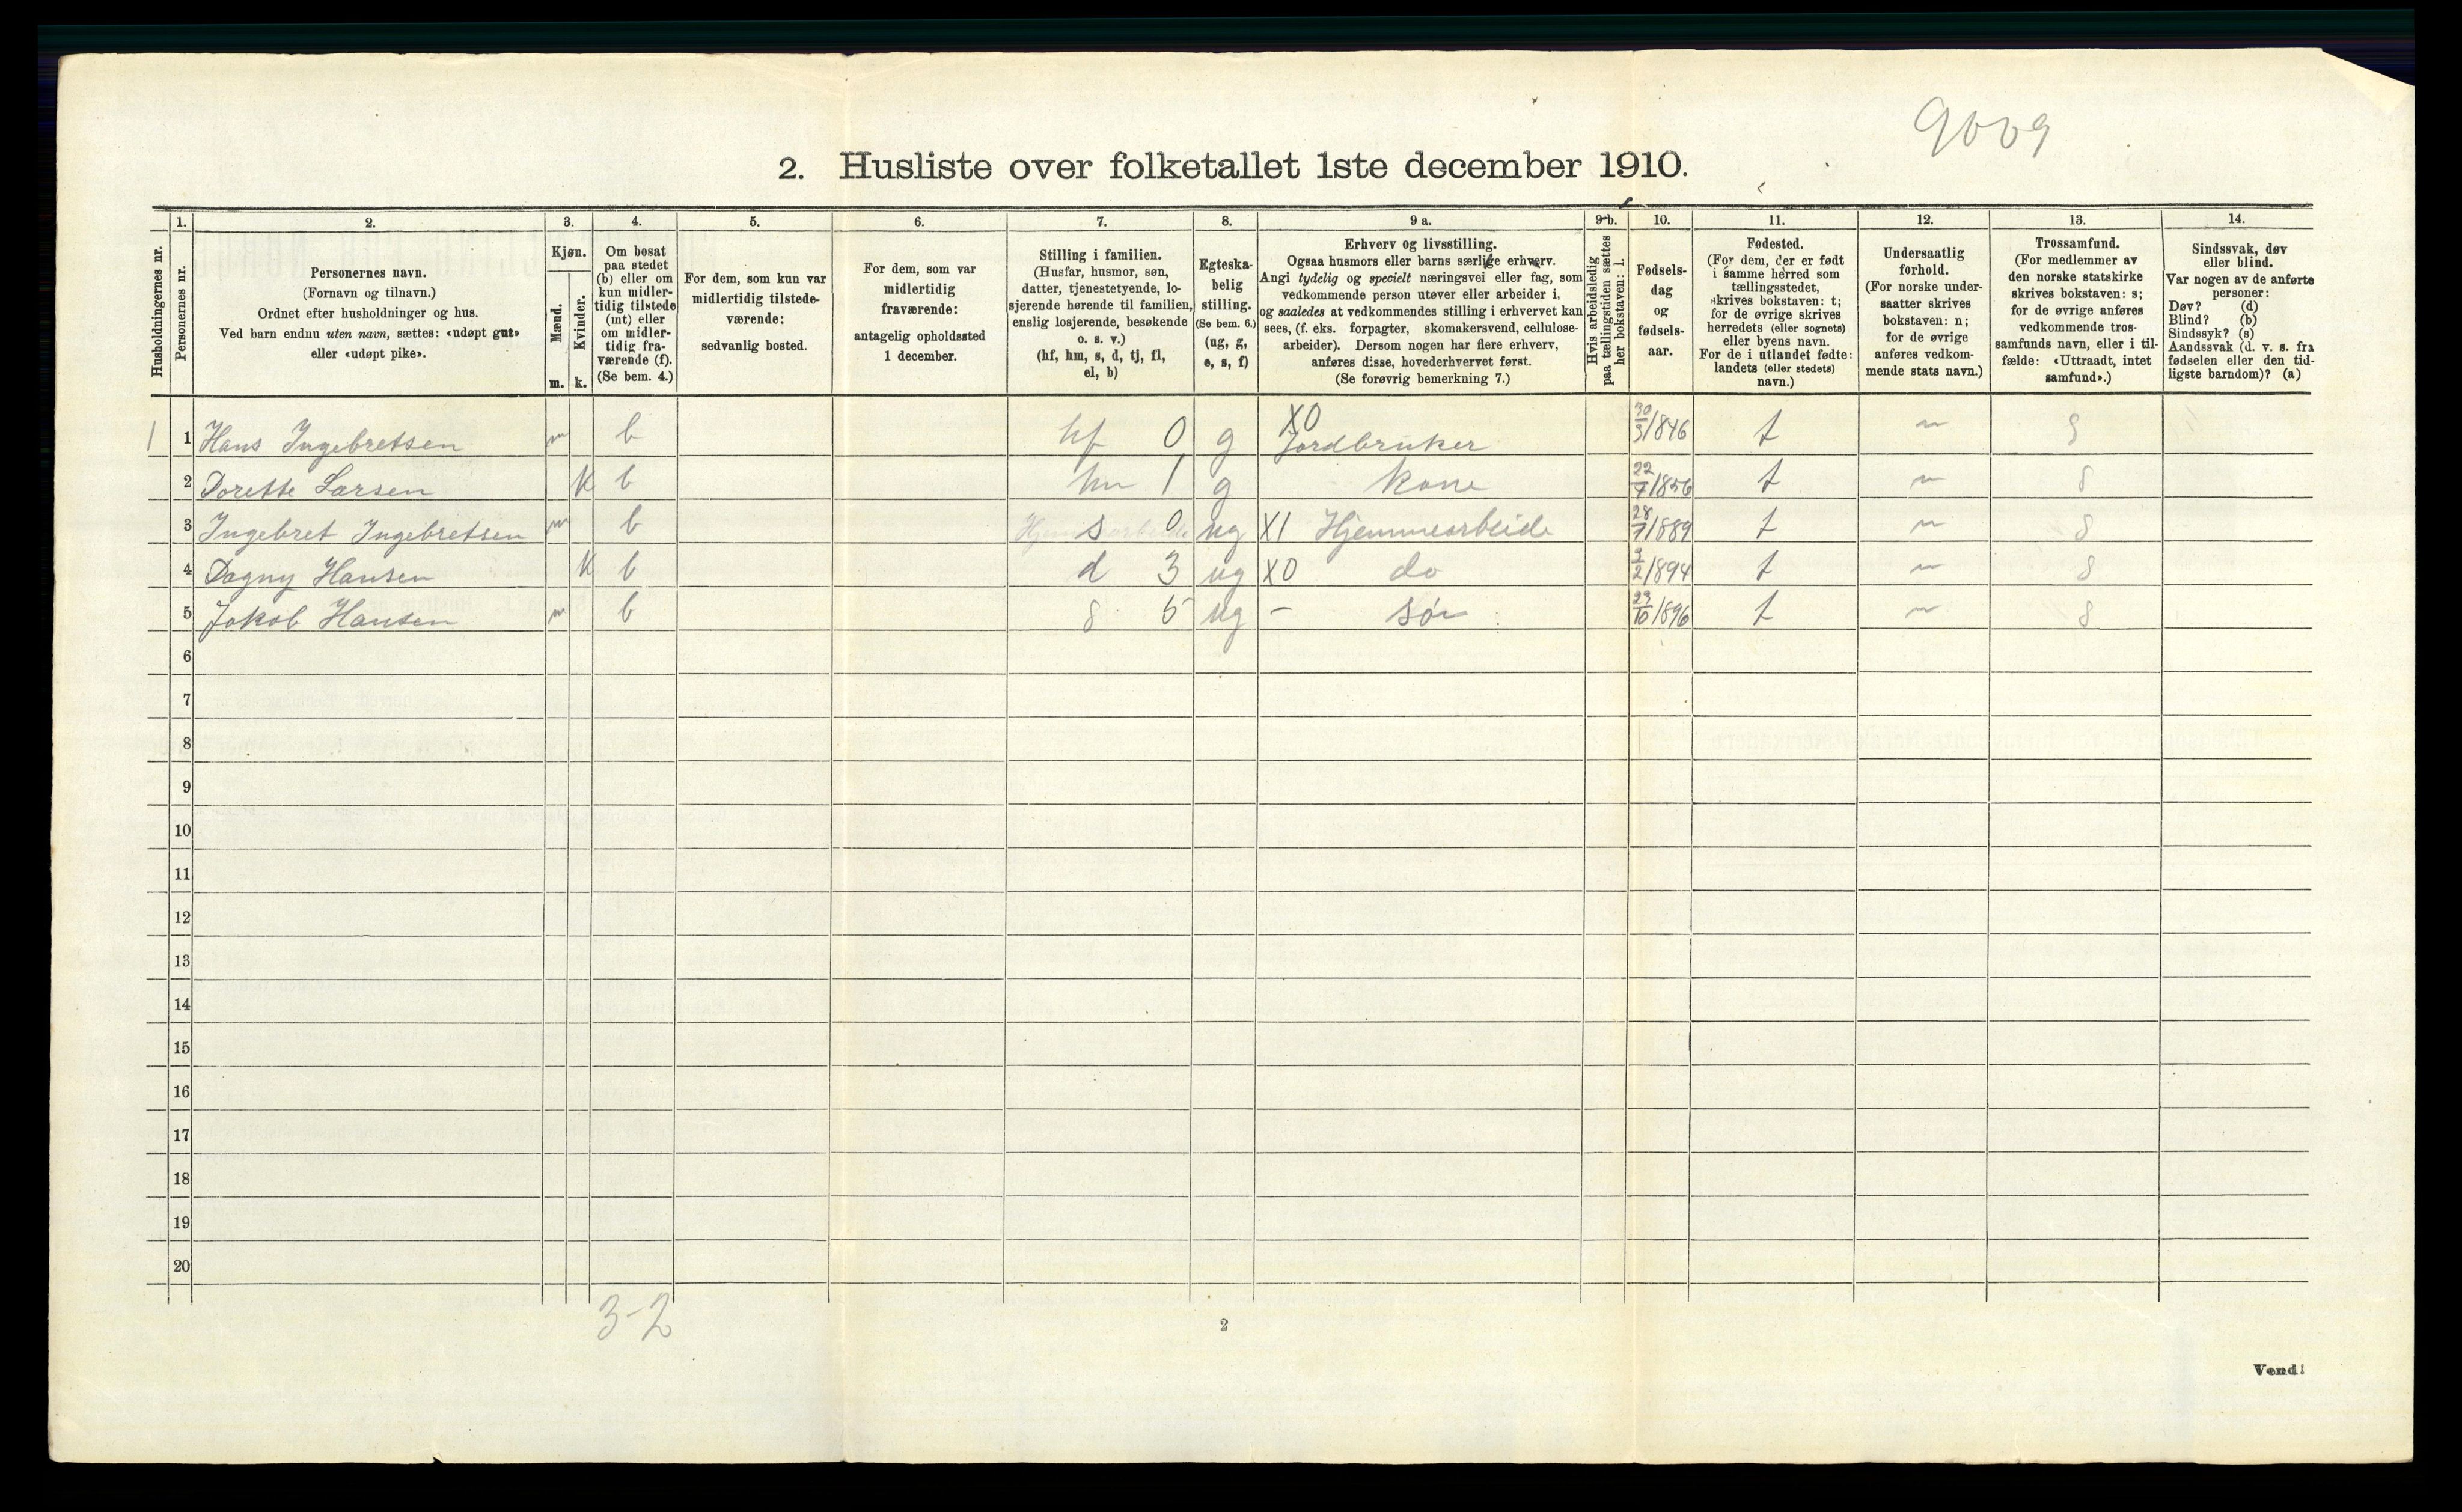 9009
2. Husliste over folketallet 1ste december 1910.
Husholdningernes nr.
1.
Personernes nr.
2.
Personernes navn.
(Fornavn og tilnavn.)
Ordnet efter husholdninger og hus.
Ved barn endnu uten navn, sættes: «udøpt gut»
eller «udøpt pike».
3.
Kjøn.
Mænd.
Kvinder.
m. k.
4.
Om bosat
paa stedet
(b) eller om
kun midler-
tidig tilstede
(mt) eller
om midler-
tidig fra-
værende (f).
(Se bem. 4.)
5.
For dem, som kun var
midlertidig tilstede-
værende:
sedvanlig bosted.
6.
For dem, som var
midlertidig
fraværende:
antagelig opholdssted
1 december.
7.
Stilling i familien.
(Husfar, husmor, søn,
datter, tjenestetyende, lo-
sjerende hørende til familien,
enslig losjerende, besøkende
o. s. v.)
(hf, hm, s, d, tj, fl,
el, b)
8.
Egteska-
belig
stilling.
(Se bem. 6.)
(ug, g,
e, s, f)
9 a.
Erhverv og livsstilling.
Ogsaa husmors eller barns særlige erhverv.
Angi tydelig og specielt næringsvei eller fag, som
vedkommende person utøver eller arbeider i,
og saaledes at vedkommendes stilling i erhvervet kan
sees, (f. eks. forpagter, skomakersvend, cellulose-
arbeider). Dersom nogen har flere erhverv,
anføres disse, hovederhvervet først.
(Se forøvrig bemerkning 7.)
9 b.
Hvis arbeidsledig
paa tællingstiden sættes
her bokstaven: l.
10.
Fødsels-
dag
og
fødsels-
aar.
11.
Fødested.
(For dem, der er født
i samme herred som
tællingsstedet,
skrives bokstaven: t;
for de øvrige skrives
herredets (eller sognets)
eller byens navn.
For de i utlandet fødte:
landets (eller stedets)
navn.)
12.
Undersaatlig
forhold.
(For norske under-
saatter skrives
bokstaven: n;
for de øvrige
anføres vedkom-
mende stats navn.)
13.
Trossamfund.
(For medlemmer av
den norske statskirke
skrives bokstaven: s;
for de øvrige anføres
vedkommende tros-
samfunds navn, eller i til-
fælde: «Uttraadt, intet
samfund».)
14.
Sindssvak, døv
eller blind.
Var nogen av de anførte
personer:
Døv? (d)
Blind? (b)
Sindssyk? (s)
Aandssvak (d. v. s. fra
fødselen eller den tid-
ligste barndom)? (a)
1 1 Hans Ingebretsen m b hf 0 g X0 Jordbruker 30/3/1846 t n s
2 Dorette Larsen k b hm 1 g kone 22/7/1856 t n s
3 Ingebret Ingebretsen m b s 0 ug X1 Hjemmearbeide 28/7/1889 t n s
4 Dagny Hansen k b d 3 ug X0 do 9/2/1894 t n s
5 Jakob Hansen m b s 5 ug - søn 29/10/1896 t n s
6
7
8
9
10
11
12
13
14
15
16
17
18
19
20
3-2
2
Vend!